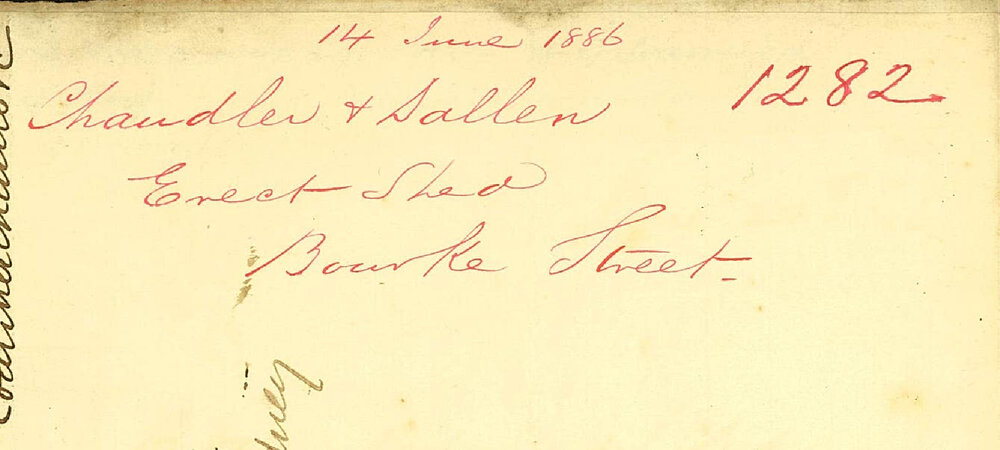 14 June 1886
1282
Chandler & Dallen
Erect Shed
Bourke Street